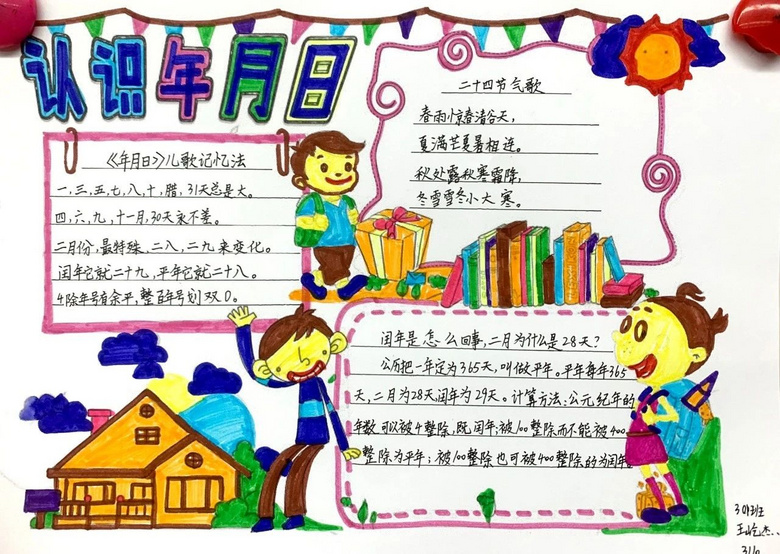 认识年月日
《年月日》儿歌记忆法
一,三,五,七,八,十,腊,31天总是大。
四,六,九,十一月,30天永不差。
二月份,最特殊,二八,二九来变化。
闰年它就二十九,平年它就二十八。
4除年号有余平,整百年号划双0。
二十四节气歌
春雨惊春清谷天,
夏满芒夏暑相连。
秋处露秋寒霜降,
冬雪雪冬小大寒。
闰年是怎么回事,二月为什么是28天?
公历把一年定为365天,叫做平年。平年每年365
天,二月为28天闰年为29天。计算方法:公元纪年的
年数可以被4整除,既闰年;被100整除而不能被400
整除为平年;被100整除也可被400整除的为闰年。
301班